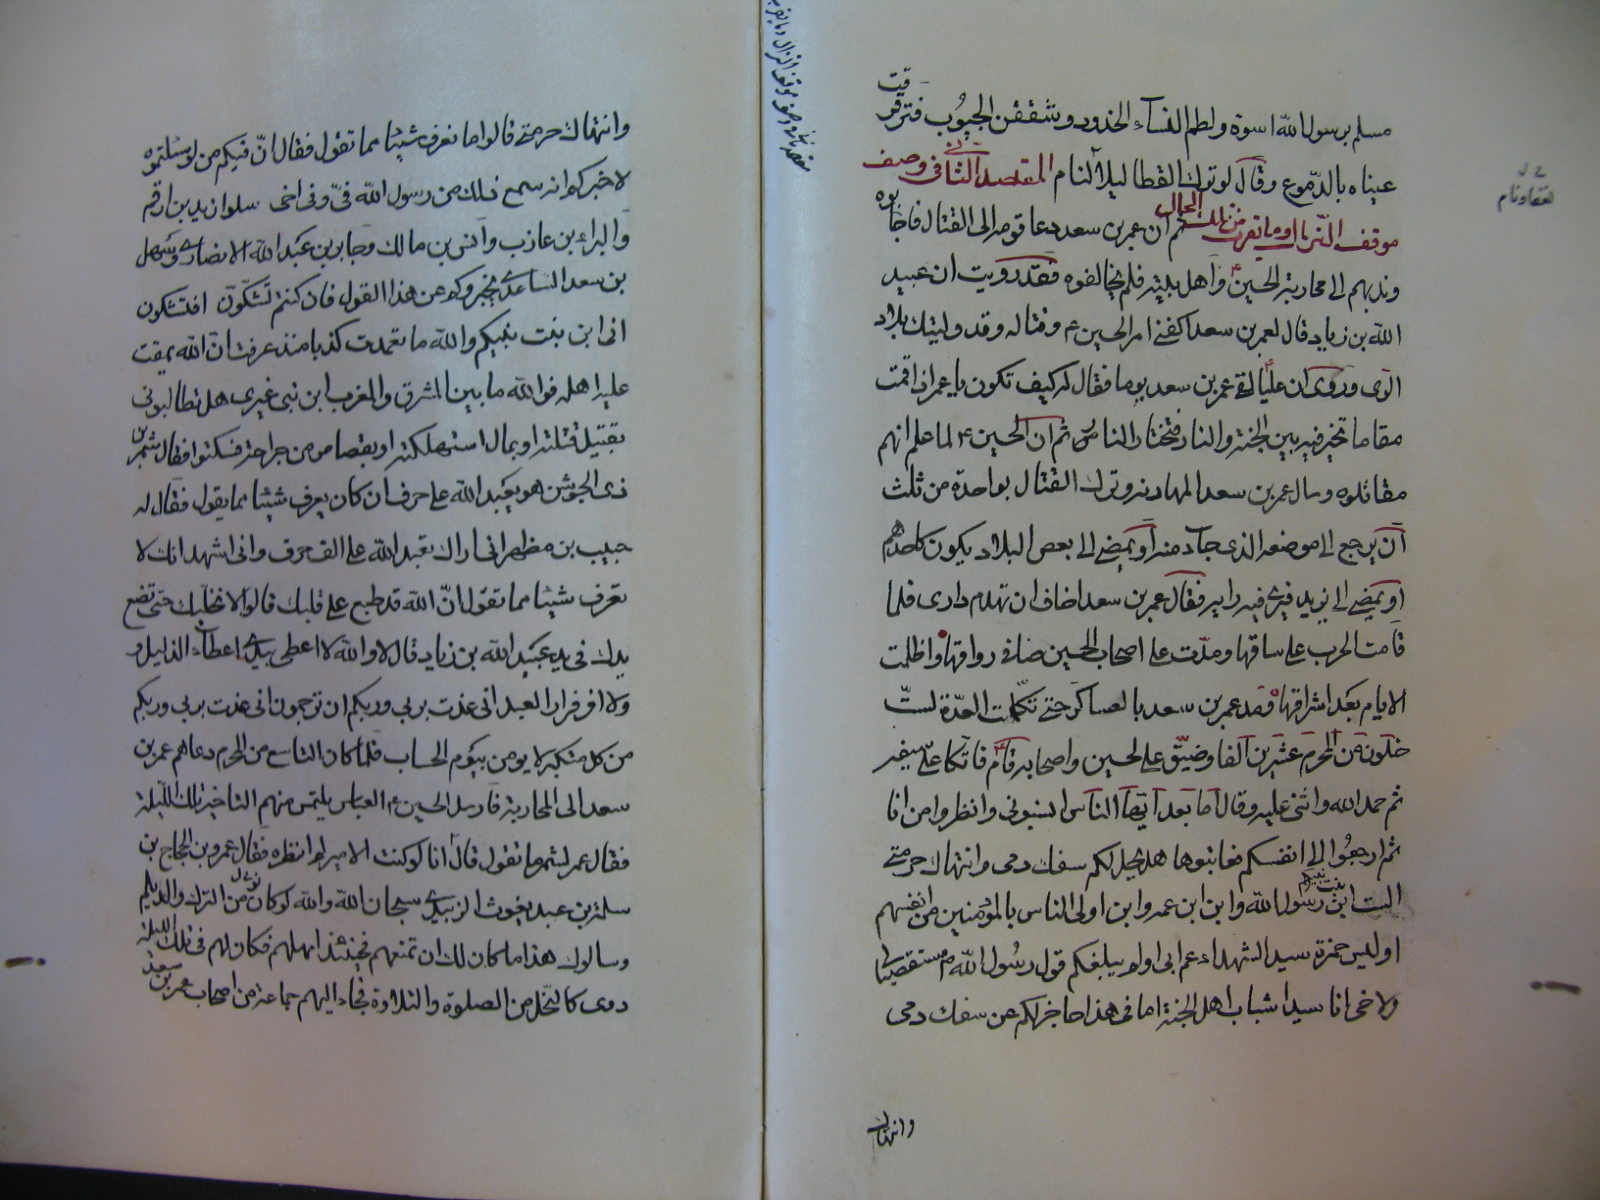 مسلم برسول الله اسوة ولطم النساء الخدود وشققن الجيوب فترقرقت
عيناه بالدموع وقال لو ترك القطا ليلا لنام المقصد الثاني في وصف
موقف النزال وما يقرب من تلك الحال ثم ان عمر بن سعد دعا قومه الى القتال فاجابوه
وندبهم الى محاربة الحسين ع واهل بيته فلم يخالفوه فقد رويت ان عبيد
الله بن زياد قال لعمر بن سعد اكفني امر الحسين ع وقتاله وقد وليتك بلاد
الرى وروى ان عليا لقى عمر بن سعد يوما فقال له كيف تكون يا عمر اذا قمت
مقاما تخير فيه بين الجنة والنار فتختار النار ثم ان الحسين ع لما علم انهم
مقاتلوه وسال عمر بن سعد المهادنه وترك القتال بواحدة من ثلث
ان يرجع الى موضعه الذى جاء منه او يمضي الى بعض البلاد يكون كاحدهم
او يمضي الى يزيد فيرى فيه رايه فقال عمر بن سعد اخاف ان تهدم دارى فلما
قامت الحرب على ساقها ومدّت على اصحاب الحسين ضافى رواقها واظلمت
الايام بعد اشراقها قصد عمر بن سعد بالعساكر حتى تكملت العدّة لستّ
خلون من المحرم عشرين الفا وضيّق على الحسين واصحابه قام ع فاتكا على سيفه
ثم حمد الله واثنى عليه وقال اما بعد ايها الناس انسبونى وانظروا من انا
ثم ارجعوا الى انفسكم فعاتبوها هل يحل لكم سفك دمى وانتهاك حرمتى
الست ابن بنت نبيكم رسول الله وابن ابن عمه وابن اولى الناس بالمؤمنين من انفسهم
اوليس حمزة سيد الشهداء عم ابى اولم يبلغكم قول رسول الله ص مستفيضا
ولاخى انا سيدا شباب اهل الجنة اما فى هذا حاجز لكم عن سفك دمى
وانتهاك
وانتهاك حرمتى قالوا ما نعرف شيئا مما تقول فقال انّ فيكم من لو سئلتموه
لاخبركم انه سمع ذلك من رسول الله فىّ وفى اخى سلوا زيد بن ارقم
والبراء بن عازب وانس بن مالك وجابر بن عبد الله الانصارى وسهل
بن سعد الساعدى يخبروكم عن هذا القول فان كنتم تشكّون افتشكون
انى ابن بنت نبيكم والله ما تعمدت كذبا منذ عرفت انّ الله يمقت
عليه اهله فوالله ما بين المشرق والمغرب ابن نبى غيرى هل تطالبونى
بقتيل قتلته او بمال استهلكته او بقصاص من جراحة فسكتوا فقال شمر بن
ذى الجوشن هو يعبد الله على حرف ان كان يعرف شيئا مما يقول فقال له
حبيب بن مظهر انى اراك تعبد الله على الف حرف وانى اشهد انك لا
تعرف شيئا مما تقول انّ الله قد طبع على قلبك قالوا لا نخلّيك حتى تضع
يدك فى يد عبيد الله بن زياد قال لا والله لا اعطى بيدى اعطاء الذليل و
ولا افر فرار العبد انى عذت بربى وربكم ان ترجمون انى عذت بربى وربكم
من كل متكبر لا يومن بيوم الحساب فلما كان التاسع من المحرم دعاهم عمر بن
سعد الى المحاربة فارسل الحسين ع العباس يلتمس منهم التاخير تلك الليلة
فقال عمر لشمر ما تقول قال اما انا لو كنت الامير لم انظره فقال عمرو بن الحجاج بن
سلمة بن عبد يغوث الزبيدى سبحان الله والله لو كان من الترك والديلم
وسالوك هذا ما كان لك ان تمنعهم فحينئذ امهلهم فكان لهم فى تلك الليلة
دوى كالنحل من الصلوة والتلاوة فجاء اليهم جماعة من اصحاب عمر بن سعد